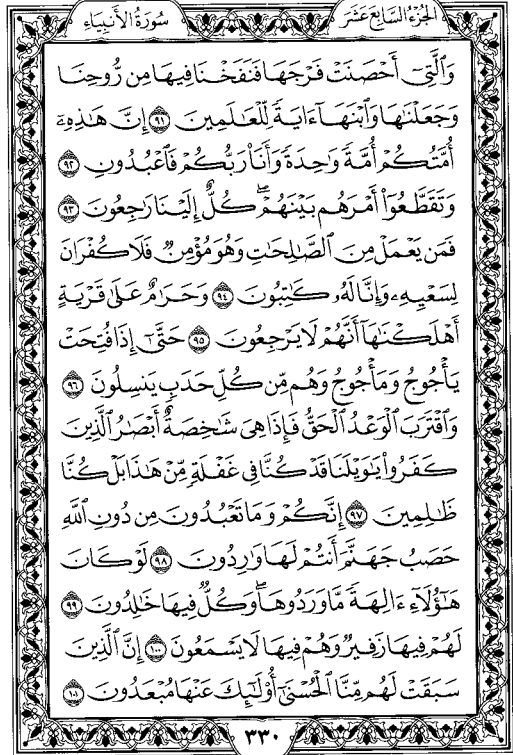 سُورَةُ الأَنبِيَاءِ
الجُزْءُ السَّابِعَ عَشَرَ
وَٱلَّتِىٓ أَحْصَنَتْ فَرْجَهَا فَنَفَخْنَا فِيهَا مِن رُّوحِنَا
وَجَعَلْنَٰهَا وَٱبْنَهَآ ءَايَةً لِّلْعَٰلَمِينَ ٩١ إِنَّ هَٰذِهِۦٓ
أُمَّتُكُمْ أُمَّةً وَٰحِدَةً وَأَنَا۠ رَبُّكُمْ فَٱعْبُدُونِ ٩٢
وَتَقَطَّعُوٓا۟ أَمْرَهُم بَيْنَهُمْ ۖ كُلٌّ إِلَيْنَا رَٰجِعُونَ ٩٣
فَمَن يَعْمَلْ مِنَ ٱلصَّٰلِحَٰتِ وَهُوَ مُؤْمِنٌ فَلَا كُفْرَانَ
لِسَعْيِهِۦ وَإِنَّا لَهُۥ كَٰتِبُونَ ٩٤ وَحَرَٰمٌ عَلَىٰ قَرْيَةٍ
أَهْلَكْنَٰهَآ أَنَّهُمْ لَا يَرْجِعُونَ ٩٥ حَتَّىٰٓ إِذَا فُتِحَتْ
يَأْجُوجُ وَمَأْجُوجُ وَهُم مِّن كُلِّ حَدَبٍ يَنسِلُونَ ٩٦
وَٱقْتَرَبَ ٱلْوَعْدُ ٱلْحَقُّ فَإِذَا هِىَ شَٰخِصَةٌ أَبْصَٰرُ ٱلَّذِينَ
كَفَرُوا۟ يَٰوَيْلَنَا قَدْ كُنَّا فِى غَفْلَةٍ مِّنْ هَٰذَا بَلْ كُنَّا
ظَٰلِمِينَ ٩٧ إِنَّكُمْ وَمَا تَعْبُدُونَ مِن دُونِ ٱللَّهِ
حَصَبُ جَهَنَّمَ أَنتُمْ لَهَا وَٰرِدُونَ ٩٨ لَوْ كَانَ
هَٰٓؤُلَآءِ ءَالِهَةً مَّا وَرَدُوهَا ۖ وَكُلٌّ فِيهَا خَٰلِدُونَ ٩٩
لَهُمْ فِيهَا زَفِيرٌ وَهُمْ فِيهَا لَا يَسْمَعُونَ ١٠٠ إِنَّ ٱلَّذِينَ
سَبَقَتْ لَهُم مِّنَّا ٱلْحُسْنَىٰٓ أُو۟لَٰٓئِكَ عَنْهَا مُبْعَدُونَ ١٠١
٣٣٠